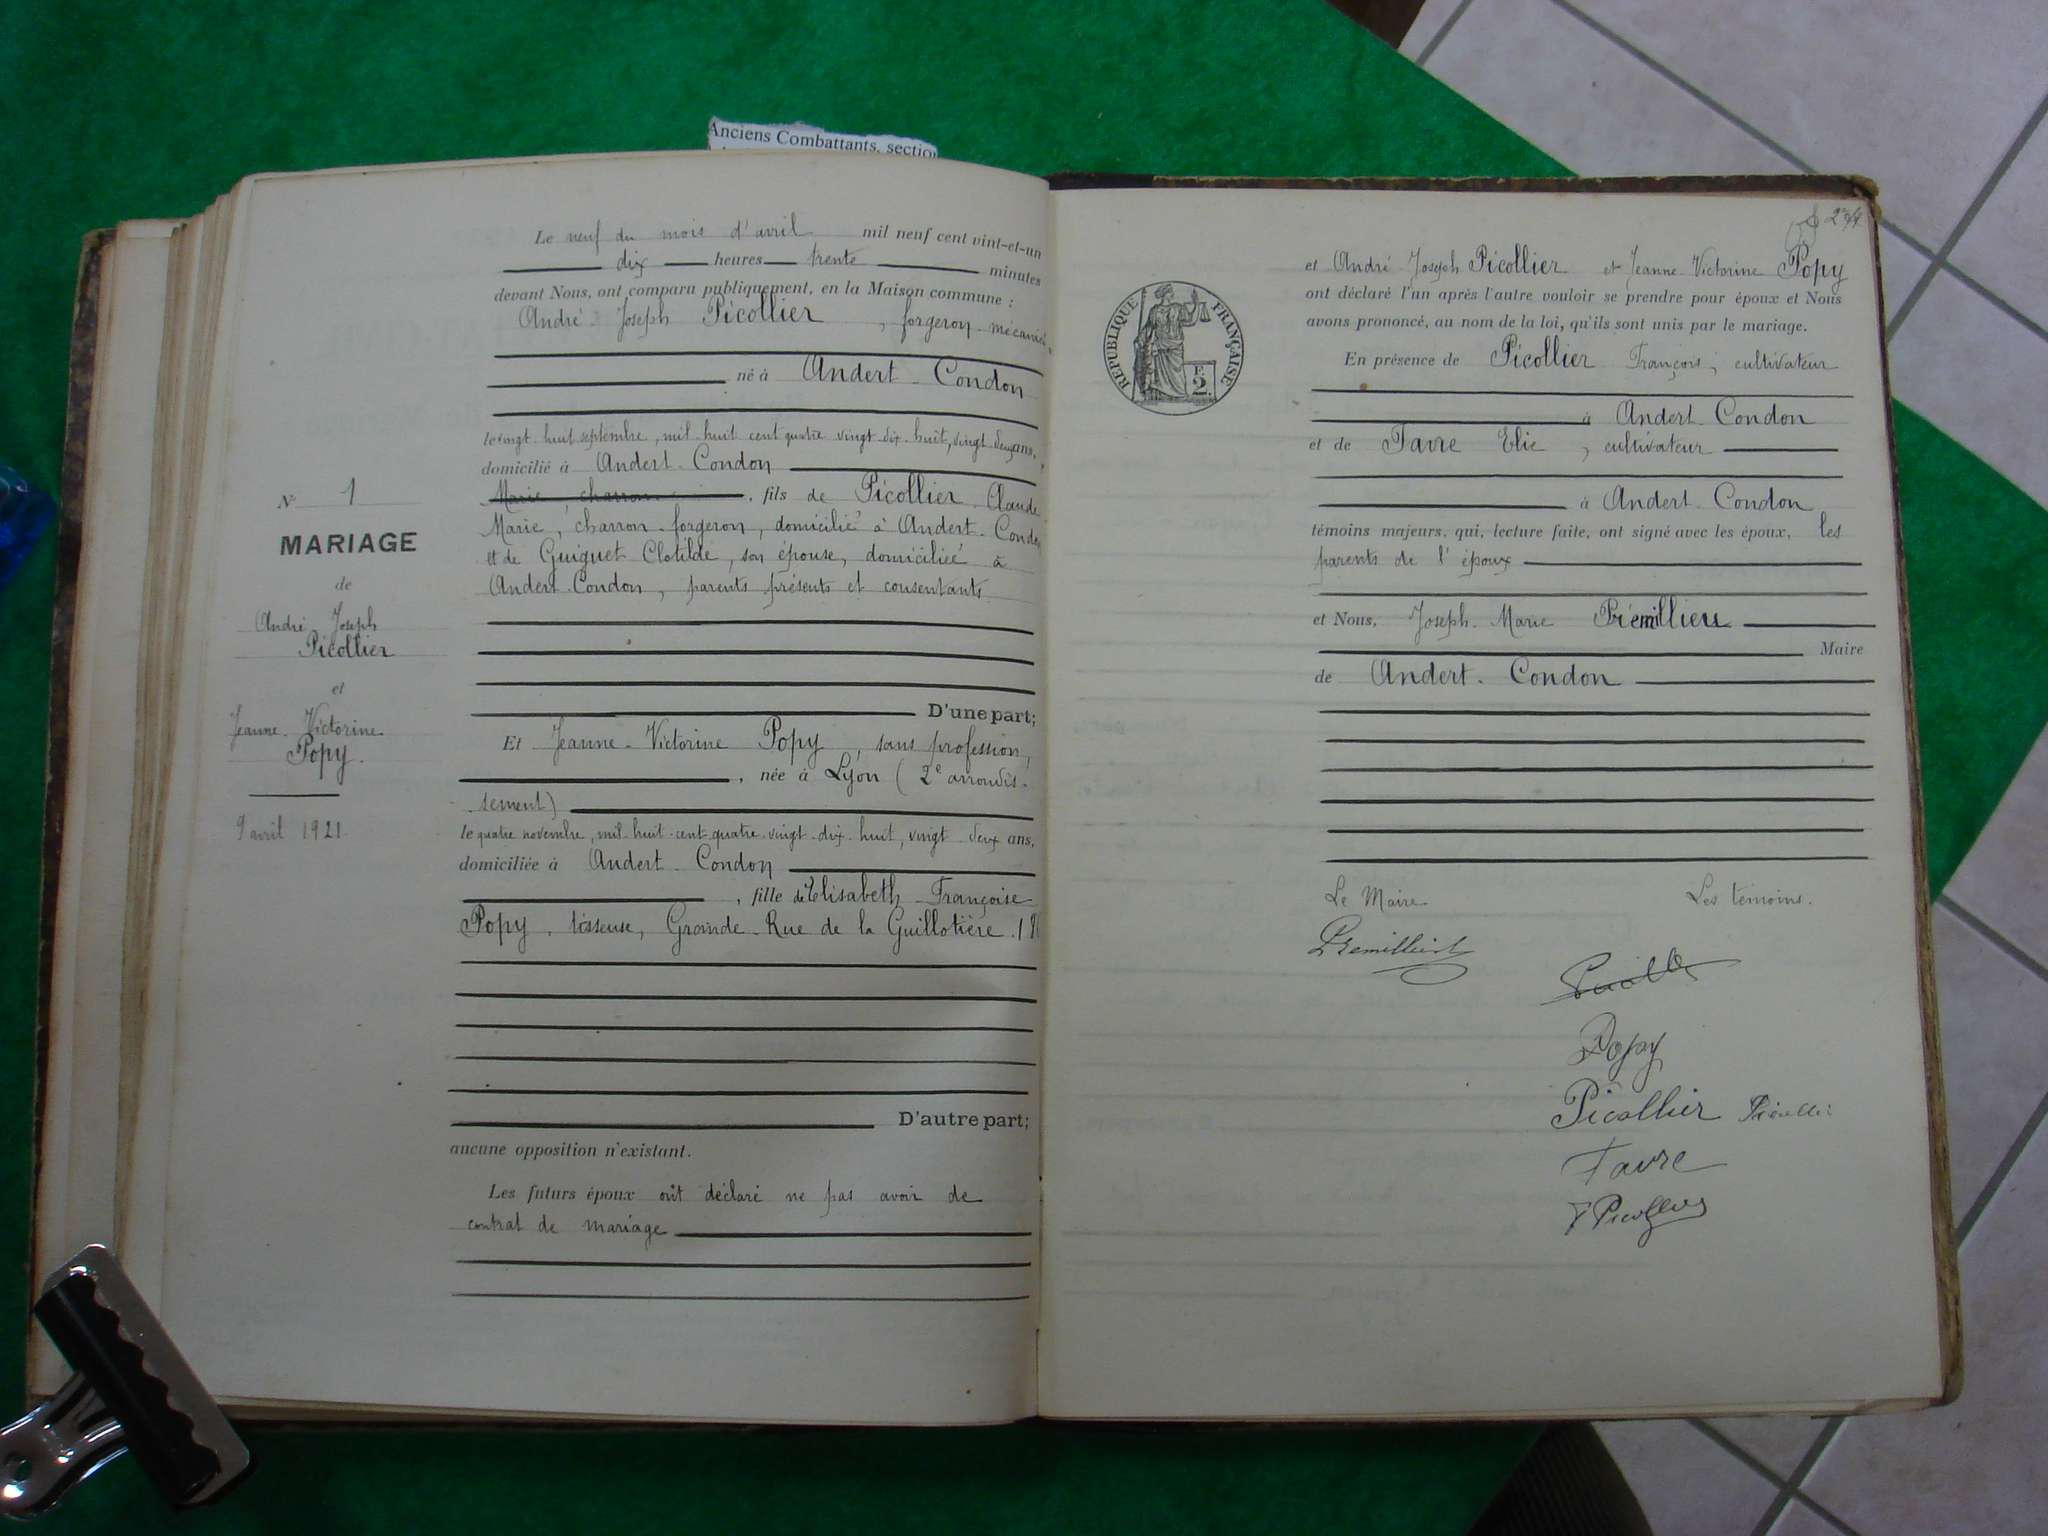 Anciens Combattants, section
Le neuf du mois d'avril mil neuf cent vint-et-un
dix heures trente minutes
devant Nous, ont comparu publiquement, en la Maison commune :
André Joseph Picollier, forgeron-mécanici
né à Andert-Condon
le vingt-huit septembre, mil-huit cent quatre vingt-dix-huit, vingt-deux ans,
domicilié à Andert-Condon
Marie, charron, fils de Picollier Claude
Marie, charron-forgeron, domicilié à Andert-Condon
et de Guiguet Clotilde, son épouse, domiciliée à
Andert-Condon, parents présents et consentants
D'une part;
Et Jeanne-Victorine Popy, sans profession,
, née à Lyon (2e arrondis-
sement)
le quatre novembre, mil-huit-cent-quatre-vingt-dix-huit, vingt-deux ans,
domiciliée à Andert-Condon
, fille de Elisabeth Françoise
Popy, tisseuse, Grande-Rue de la Guillotière.
D'autre part;
aucune opposition n'existant.
Les futurs époux ont déclaré ne pas avoir de
contrat de mariage
N° 1
MARIAGE
de
André Joseph
Picollier
et
Jeanne-Victorine
Popy.
9 avril 1921
RÉPUBLIQUE FRANÇAISE
F.
2.
et André Joseph Picollier et Jeanne-Victorine Popy
ont déclaré l'un après l'autre vouloir se prendre pour époux et Nous
avons prononcé, au nom de la loi, qu'ils sont unis par le mariage.
En présence de Picollier François, cultivateur
à Andert-Condon
et de Favre Elie, cultivateur
à Andert-Condon
témoins majeurs, qui, lecture faite, ont signé avec les époux, les
parents de l'époux
et Nous, Joseph-Marie Prémillieu
Maire
de Andert-Condon
Le Maire
Les témoins.
Popy
Picollier
Favre
F Picollier